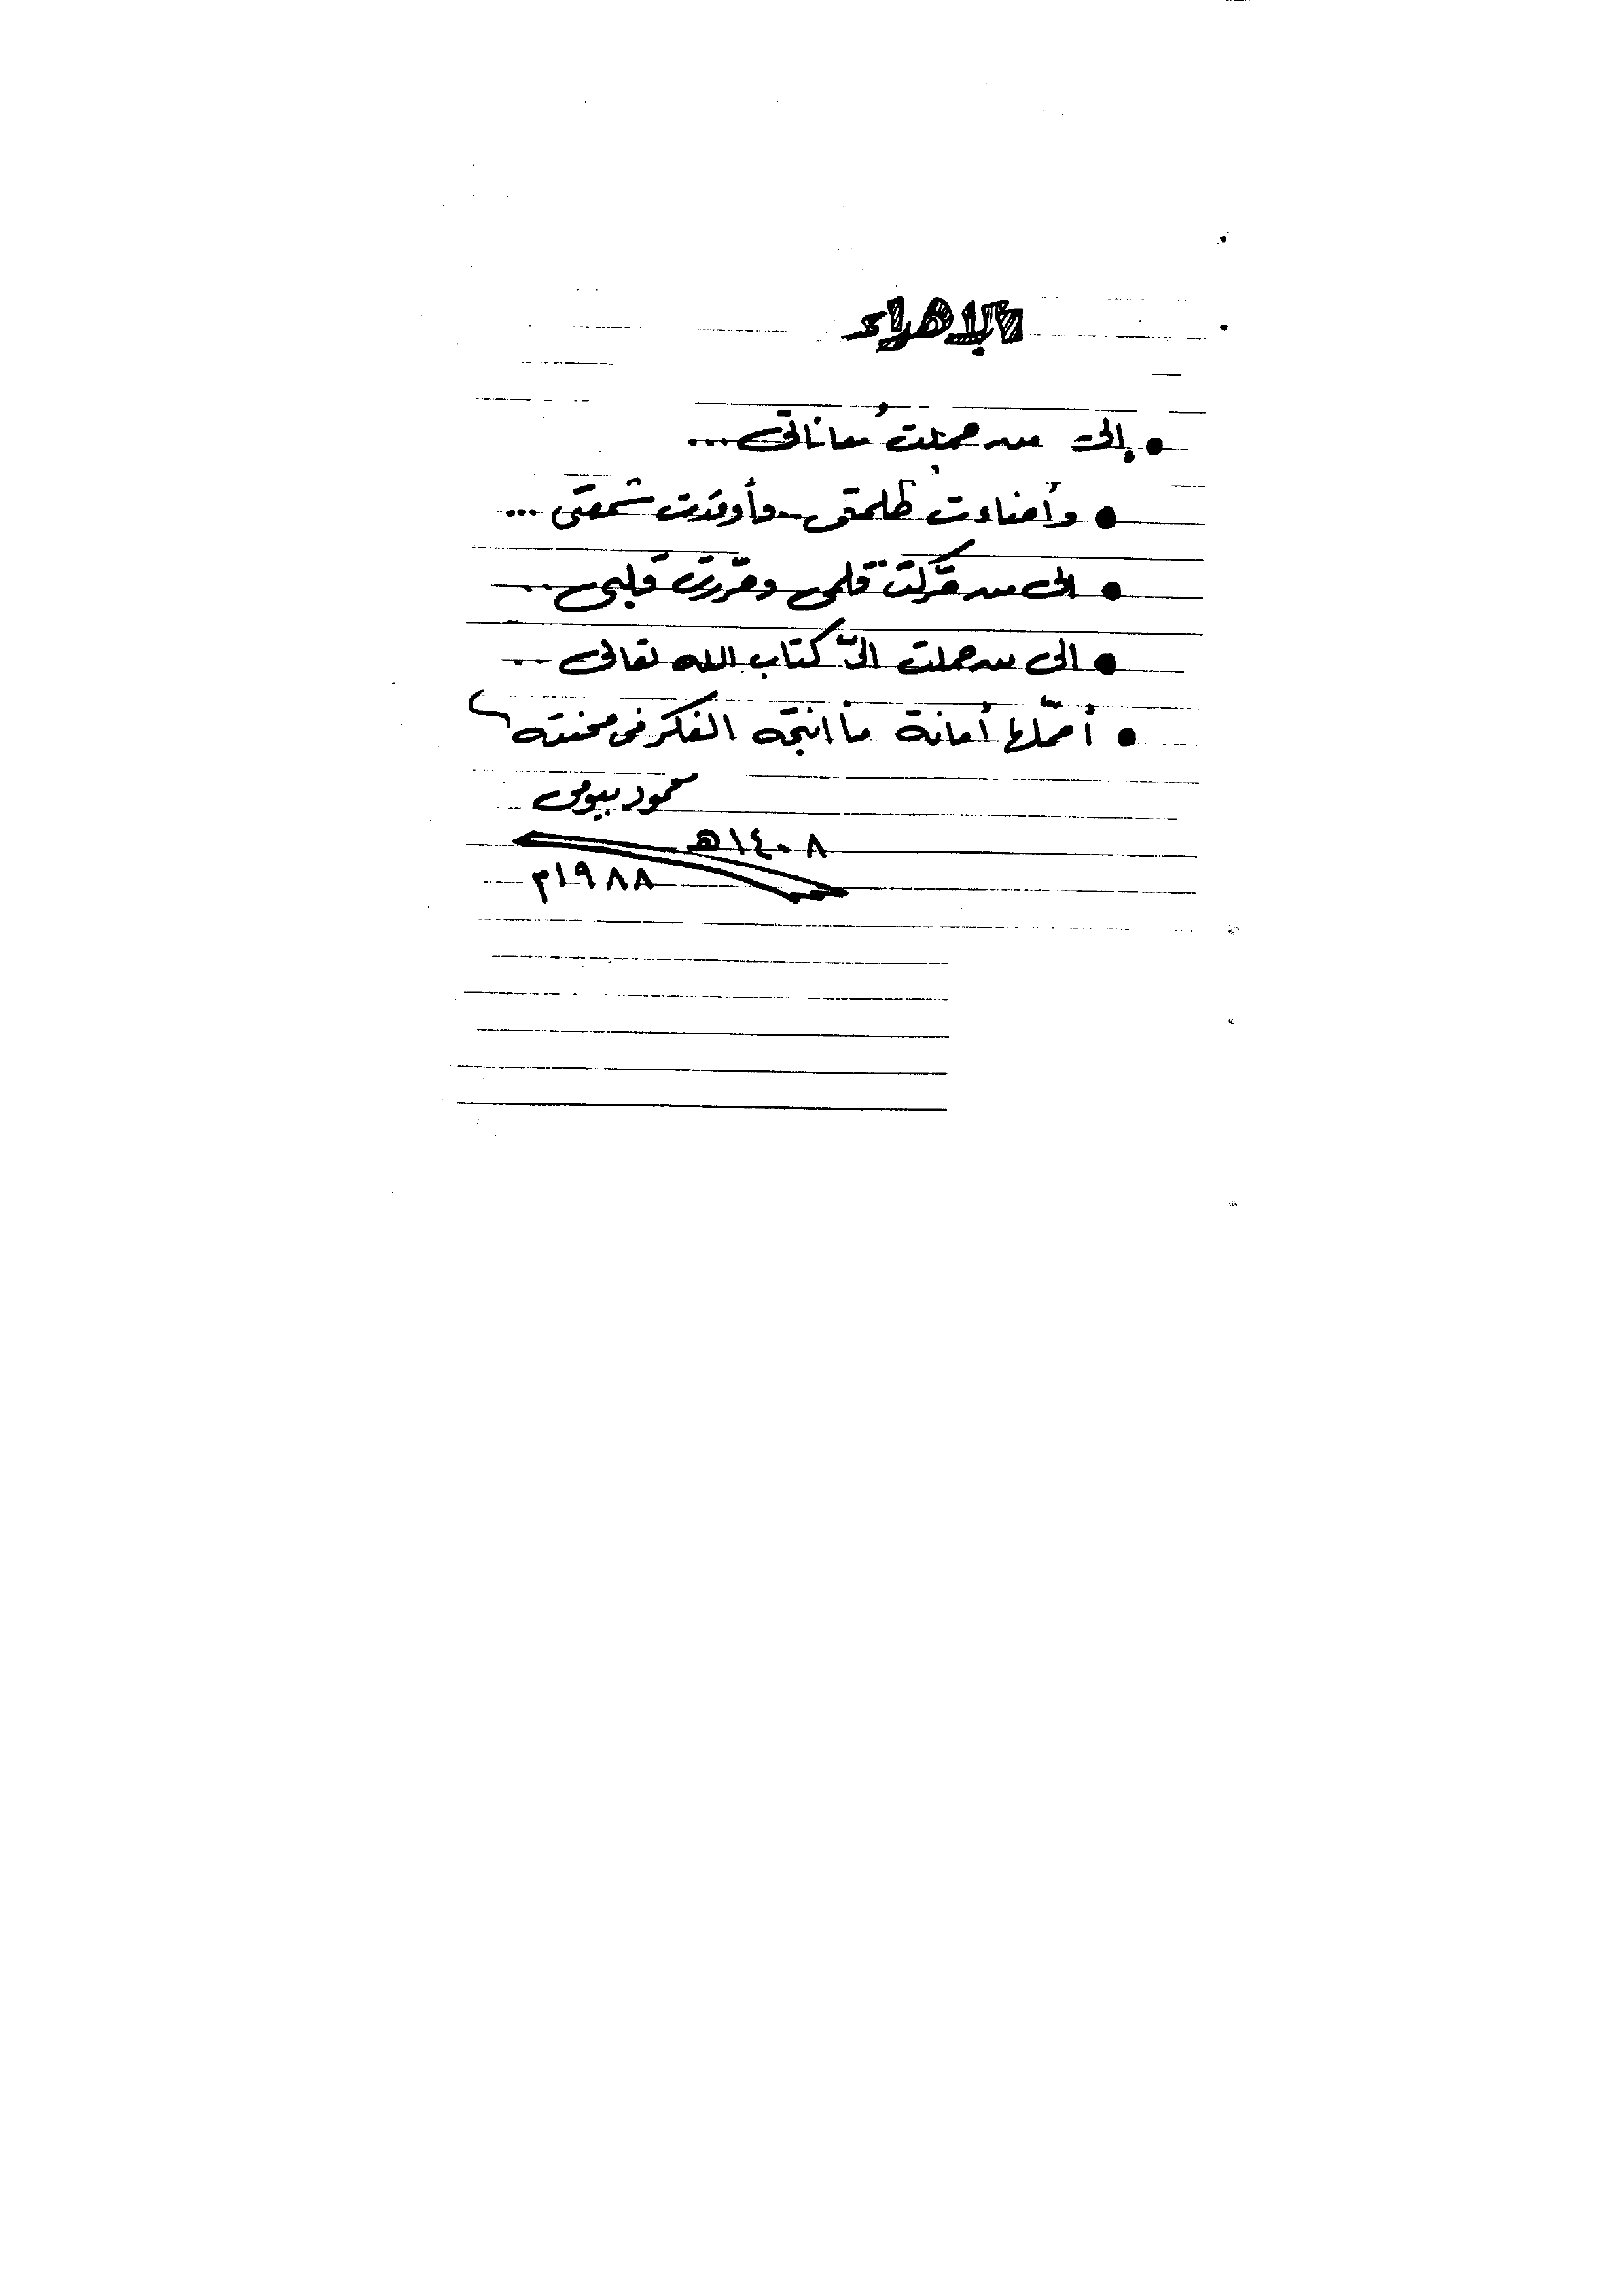 الإهداء
• إلى من حملت مُعاناتى...
• وأضاءت ظلمتى.. وأوقدت شمعتى ...
• الى من حرّكت قلمى وحرّرت قلبى ..
• الى من حملت الىّ كتاب الله تعالى ..
• أحمّلها أمانة ما انتجه الفكر فى محنته
محمود بيومى
١٤٠٨هـ
١٩٨٨م